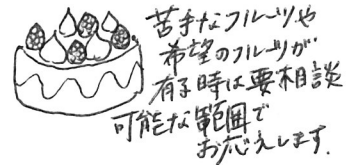 苦手なフルーツや
希望のフルーツが
有る時は要相談
可能な範囲で
お応えします.